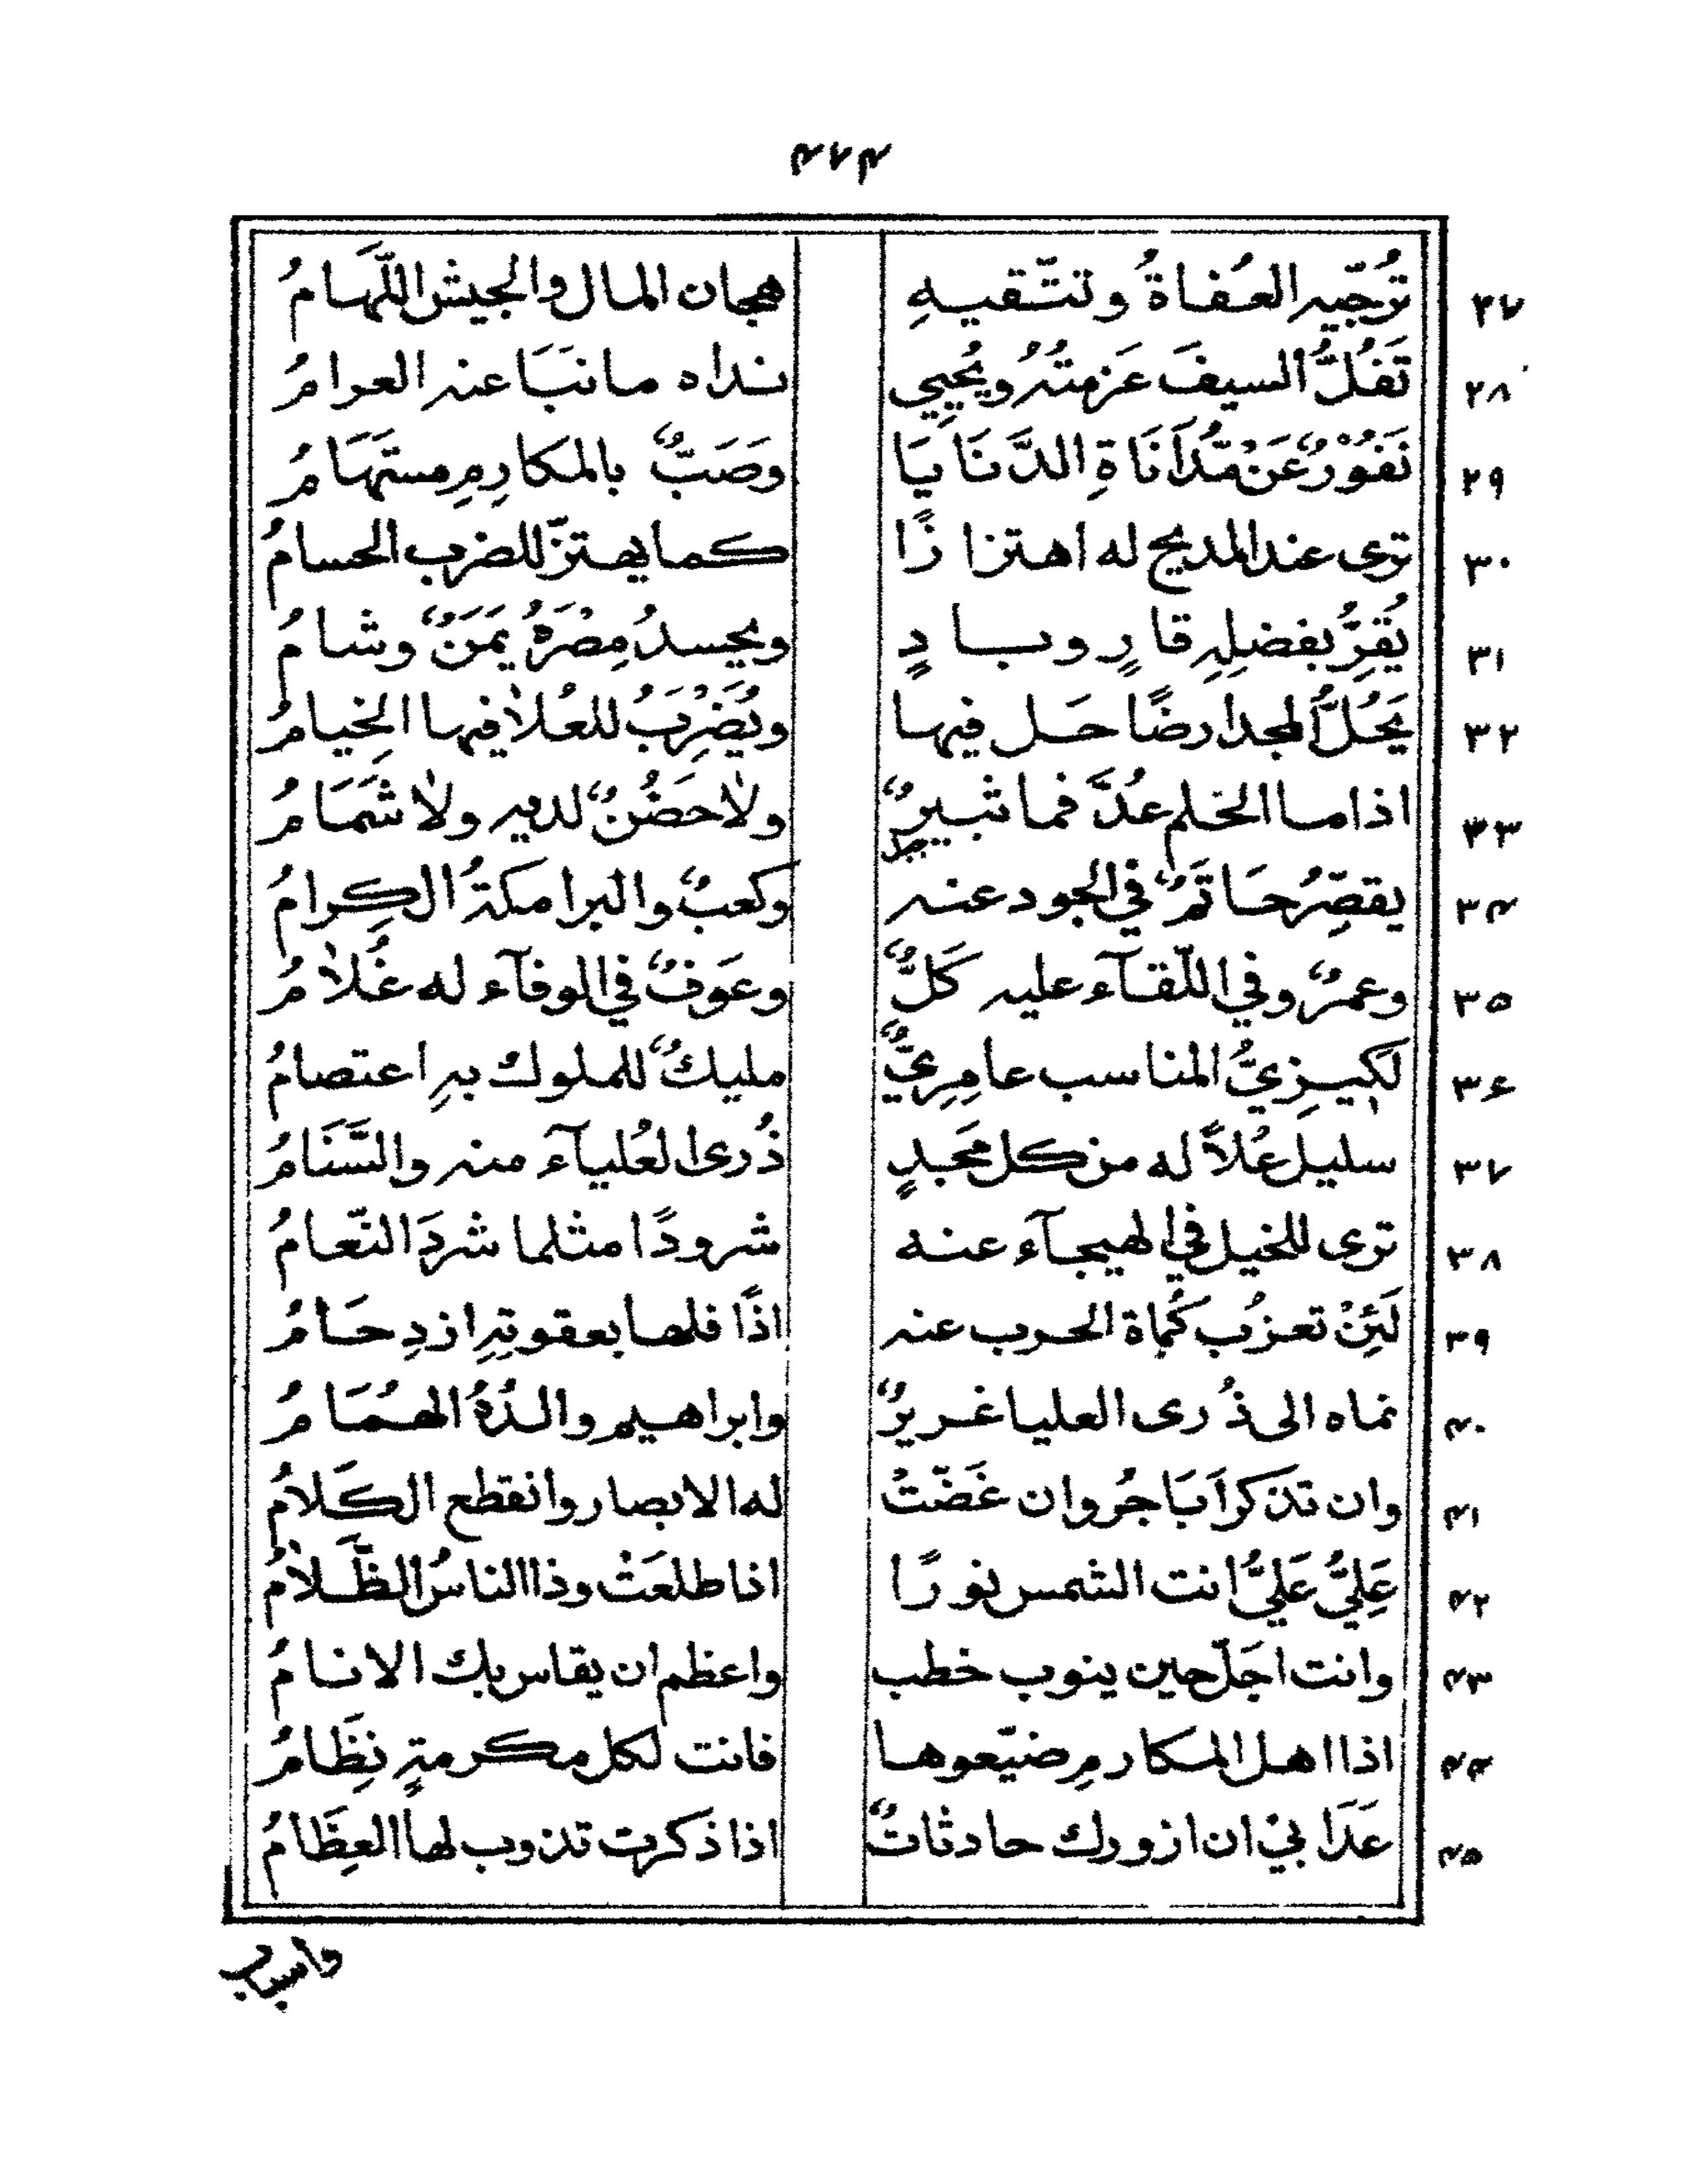 ۴۷۴
۲۷ تُرجّيهِ العُفاةُ وتتّقيهِ هجان المال والجيش اللّهامُ
۲۸ تَفُلُّ السيفَ عَزمتُهُ ويُحيِي نداه ما نَبَا عنه الغمامُ
۲۹ نَفُوْرٌ عَنْ مُدَانَاةِ الدَّنَايَا وَصَبٌّ بالمكارِمِ مستَهَامُ
۳۰ ترى عند المديح له اهتزازًا كما يهتزّ للضرب الحسامُ
۳۱ يُقِرُّ بفضلِهِ قارٍ وبادٍ ويحسدُ مِصْرَهُ يَمَنٌ وشامُ
۳۲ يَحُلُّ المجد ارضًا حَل فيها ويُضْرَبُ للعُلاٰ فيها الخِيامُ
۳۳ اذا ما الحلم عُدَّ فما ثبيرٌ ولاٰ حَضُنٌ لديه ولاٰ شَمَامُ
۳۴ يقصِّرُ حَاتَمٌ في الجود عنه وكعبٌ والبرامكةُ الكِرامُ
۳۵ وعمرٌ وفي اللّقآء عليه كَلٌّ وعَوفٌ في الوفآء له غُلاٰمُ
۳۶ لَكيزِيُّ المناسب عامِرِيٌّ مليكٌ للملوك بهِ اعتصامُ
۳۷ سليل عُلاً له من كل مَجدٍ ذُرى العُليآء منه والسَّنَامُ
۳۸ ترى للخيل في الهيجآء عنه شرودًا مثلما شردَ النّعامُ
۳۹ لَئِنْ تعزُب كُماة الحرب عنه اذًا فلها بعقوتِهِ ازدِحَامُ
۴۰ نماه الى ذُرى العليا غريرٌ وابراهيم والدُهُ الهُمَامُ
۴۱ وان تذكر اَبَا جُروان غَضّتْ له الابصار وانقطع الكَلامُ
۴۲ عَلِيُّ عَلِيُّ انت الشمس نورًا اذا طلعَتْ وذا الناسُ الظَّلاٰمُ
۴۳ وانت اجَلّ حين ينوب خطب واعظم ان يقاس بك الانامُ
۴۴ اذا اهل المكارمِ ضيّعوها فانت لكل مكرمةٍ نِظَامُ
۴۵ عَدَا بيْ ان ازورك حادثاتٌ اذا ذكرت تذوب لها العِظَامُ
واسباب